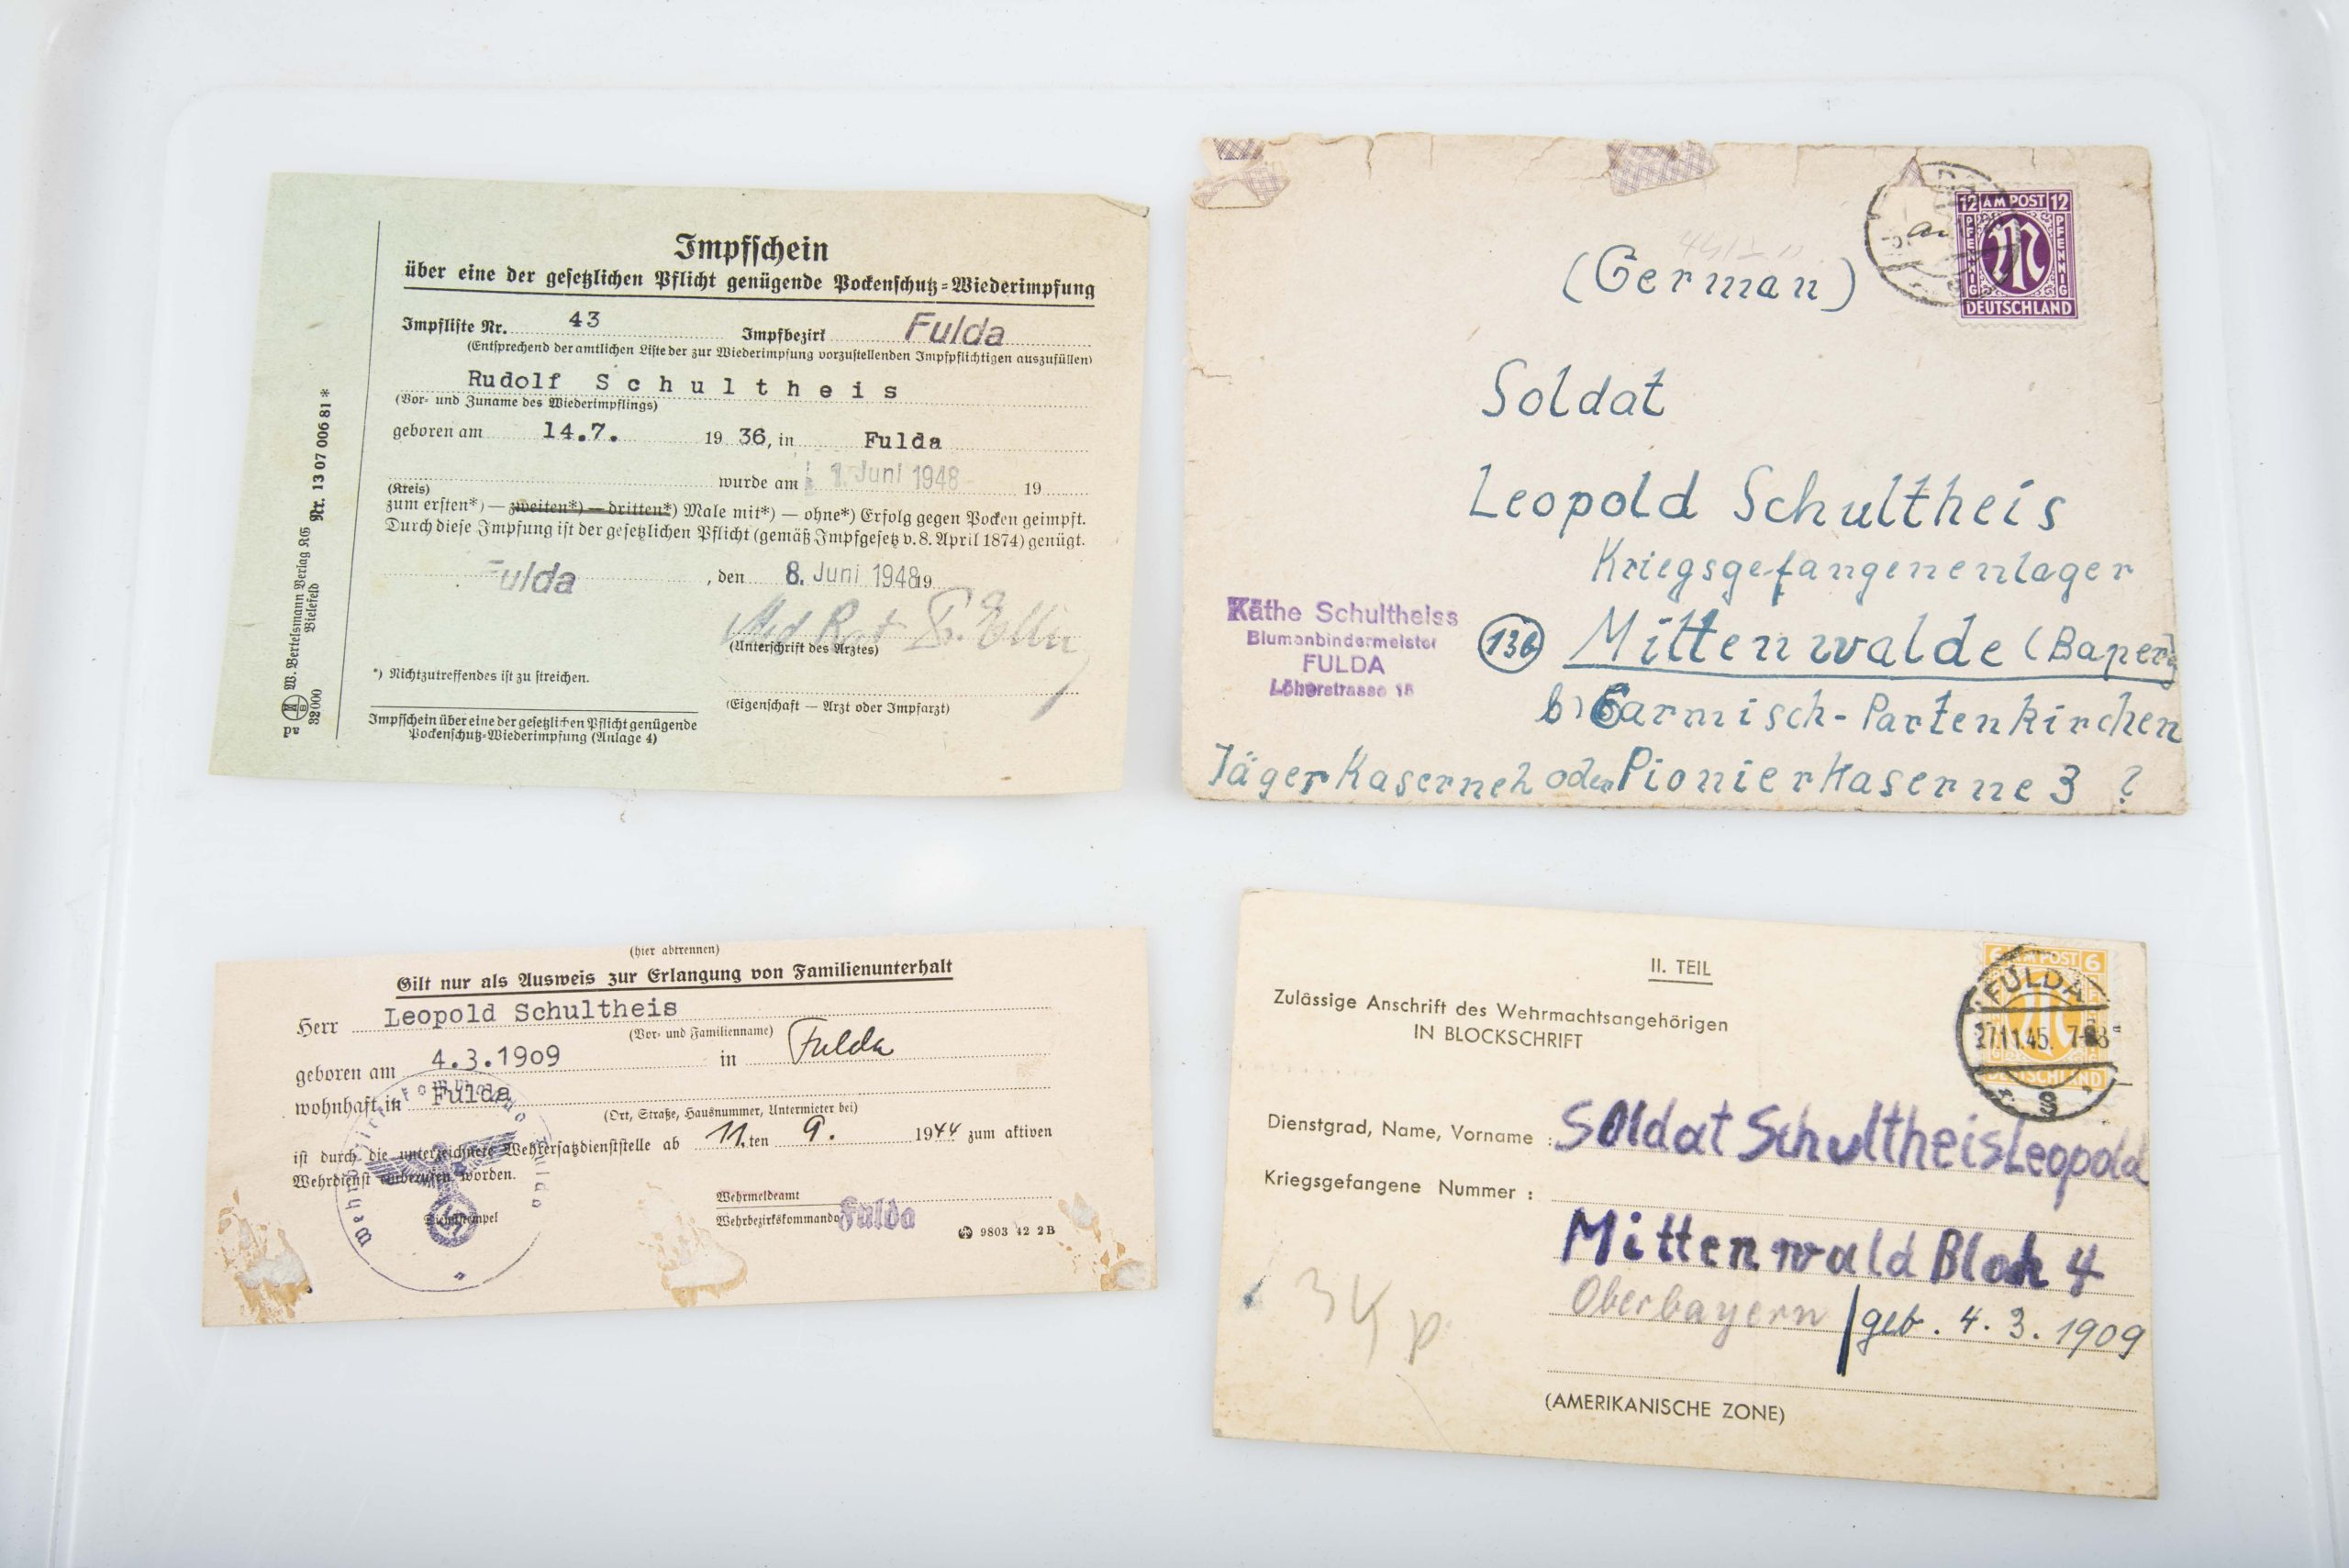 Impfschein
über eine der gesetzlichen Pflicht genügende Pockenschutz-Wiederimpfung
Impfliste Nr. 43 Impfbezirk Fulda
(Entsprechend der amtlichen Liste der zur Wiederimpfung vorzustellenden Impfpflichtigen auszufüllen)
Rudolf Schultheis
(Vor- und Zuname des Wiederimpflings)
geboren am 14.7. 19 36, in Fulda
wurde am 1. Juni 1948 19
(Kreis)
zum ersten*) — zweiten*) — dritten*) Male mit*) — ohne*) Erfolg gegen Pocken geimpft.
Durch diese Impfung ist der gesetzlichen Pflicht (gemäß Impfgesetz v. 8. April 1874) genügt.
Fulda, den 8. Juni 1948 19
Med Rat
(Unterschrift des Arztes)
*) Nichtzutreffendes ist zu streichen.
(Eigenschaft — Arzt oder Impfarzt)
Impfschein über eine der gesetzlichen Pflicht genügende
Pockenschutz-Wiederimpfung (Anlage 4)
W. Bertelsmann Verlag KG
Bielefeld
Nr. 13 07 006 81 *
32000
12 AM POST 12
PFENNIG
PFENNIG
M
DEUTSCHLAND
(German)
Soldat
Leopold Schultheis
Kriegsgefangenenlager
13b Mittenwalde (Bayern)
b) Garmisch-Partenkirchen
Jäger Kaserne 2 oder Pionier Kaserne 3 ?
Käthe Schultheiss
Blumenbindermeister
FULDA
Löherstrasse 15
(hier abtrennen)
Gilt nur als Ausweis zur Erlangung von Familienunterhalt
Herr Leopold Schultheis
(Vor- und Familienname)
geboren am 4.3.1909 in Fulda
wohnhaft in Fulda
(Ort, Straße, Hausnummer, Untermieter bei)
ist durch die unterzeichnete Wehrersatzdienststelle ab 11. ten 9. 1944 zum aktiven
Wehrdienst einberufen worden.
Dienststempel
Wehrmeldeamt
Wehrbezirkskommando Fulda
9803 42 2 B
II. TEIL
Zulässige Anschrift des Wehrmachtsangehörigen
IN BLOCKSCHRIFT
6 AM POST 6
DEUTSCHLAND
FULDA
27.11.45. 7-8
Dienstgrad, Name, Vorname : Soldat Schultheis Leopold
Kriegsgefangene Nummer :
Mittenwald Block 4
Oberbayern / geb. 4.3.1909
(AMERIKANISCHE ZONE)